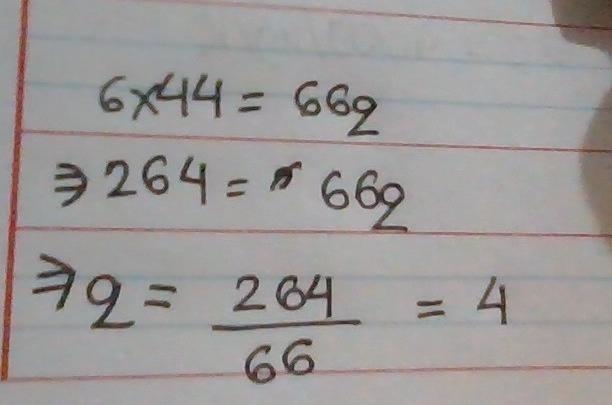 6×44 = 66q
⇒ 264 = 66q
⇒ q = 264/66 = 4